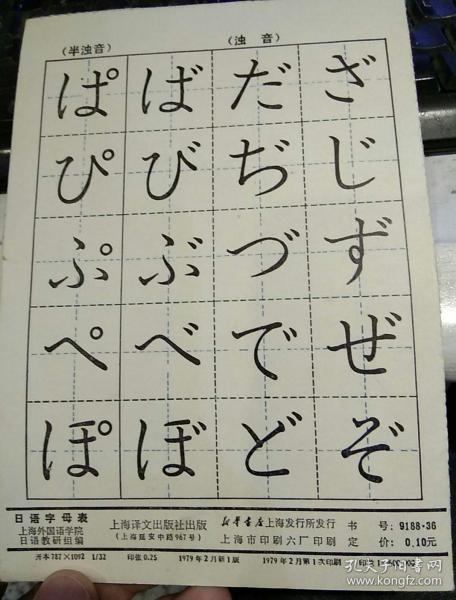 （半浊音） （浊 音）
ぱ ば だ ざ
ぴ び ぢ じ
ぷ ぶ づ ず
ぺ べ で ぜ
ぽ ぼ ど ぞ
日语字母表
上海外国语学院
日语教研组编
上海译文出版社出版
（上海延安中路967号）
新华书店上海发行所发行
上海市印刷六厂印刷
书 号：9188·36
定 价：0.10元
开本787×1092 1/32 印张0.25 1979年2月新1版 1979年2月第1次印刷
孔夫子旧书网
www.kongfz.com